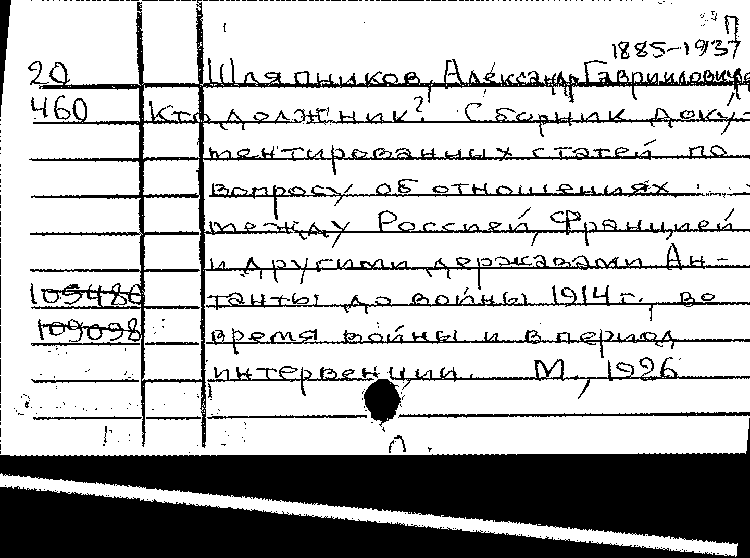 П
1885-1937
20 Шляпников, Александр Гаврилович
460 Кто должник? Сборник доку-
ментированных статей по
вопросу об отношениях
между Россией, Францией
и другими державами Ан-
105486 танты до войны 1914 г., во
109098 время войны и в период
интервенции. М., 1926